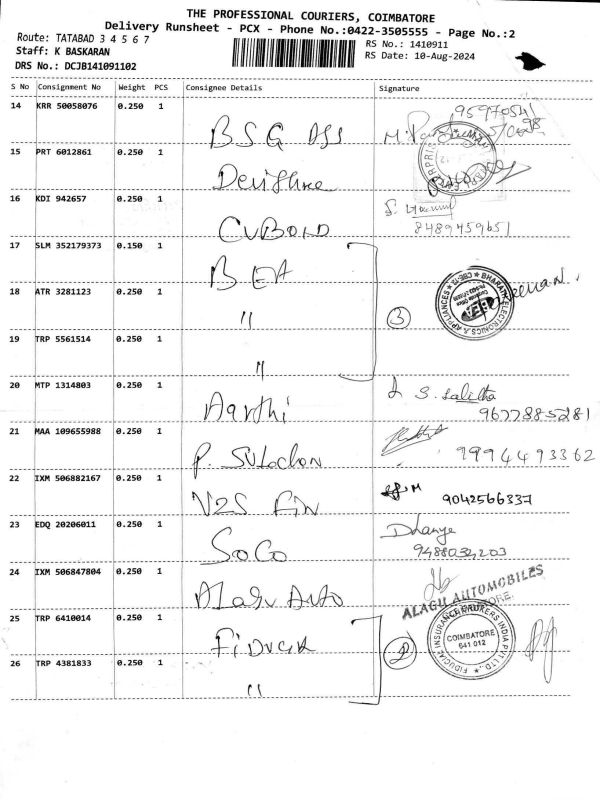 THE PROFESSIONAL COURIERS, COIMBATORE
Delivery Runsheet - PCX - Phone No.:0422-3505555 - Page No.:2
Route: TATABAD 3 4 5 6 7
RS No.: 1410911
Staff: K BASKARAN
RS Date: 10-Aug-2024
DRS No.: DCJB141091102
S No Consignment No Weight PCS Consignee Details Signature
14 KRR 50058076 0.250 1 BSG
15 PRT 6012861 0.250 1
16 KDI 942657 0.250 1 CUBOLD
8489459651
17 SLM 352179373 0.150 1 BEA
18 ATR 3281123 0.250 1 "
3
BHARATH ELECTRONICS & APPLIANCES
CBE-12
BEA
19 TRP 5561514 0.250 1 "
20 MTP 1314803 0.250 1 Aarthi S. Lalitha
9677885281
21 MAA 109655988 0.250 1 P. Sulochon
9994493362
22 IXM 506882167 0.250 1 V2S FIN
9042566337
23 EDQ 20206011 0.250 1 SoCo
9488034203
24 IXM 506847804 0.250 1 Alagu Auto
ALAGU AUTOMOBILES
25 TRP 6410014 0.250 1
2
FIDUCIAL INSURANCE BROKERS INDIA PVT LTD.,
COIMBATORE
641 012
26 TRP 4381833 0.250 1 "